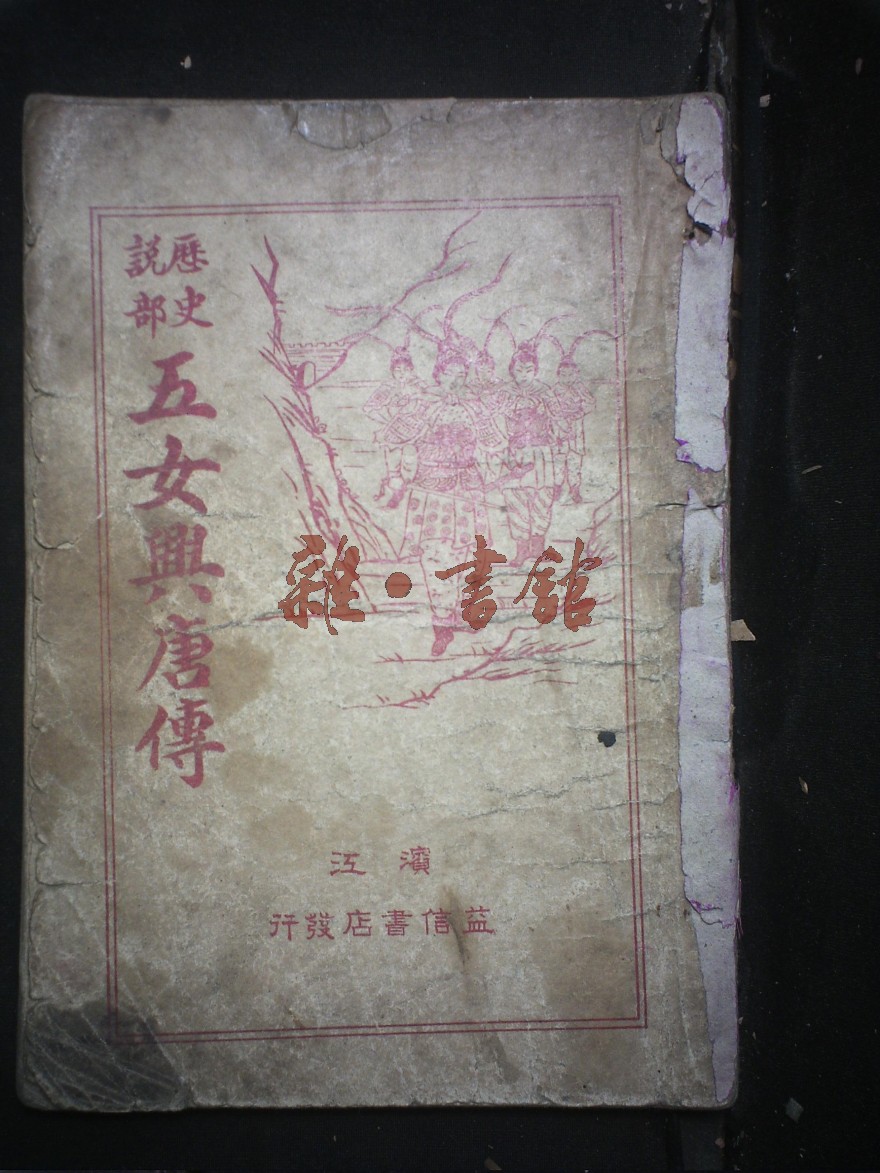 歷史
説部
五女興唐傳
雜·書館
濱江
益信書店發行